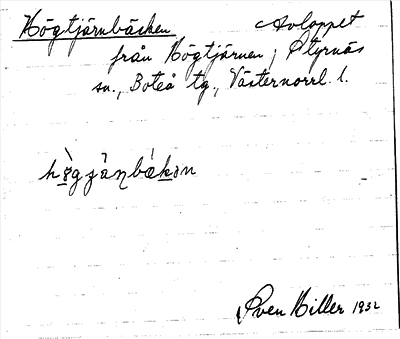 Högtjärnbäcken Avloppet
från Högtjärnen; Styrnäs
sn., Boteå tg., Västernorrl. l.
Sven Hiller 1932